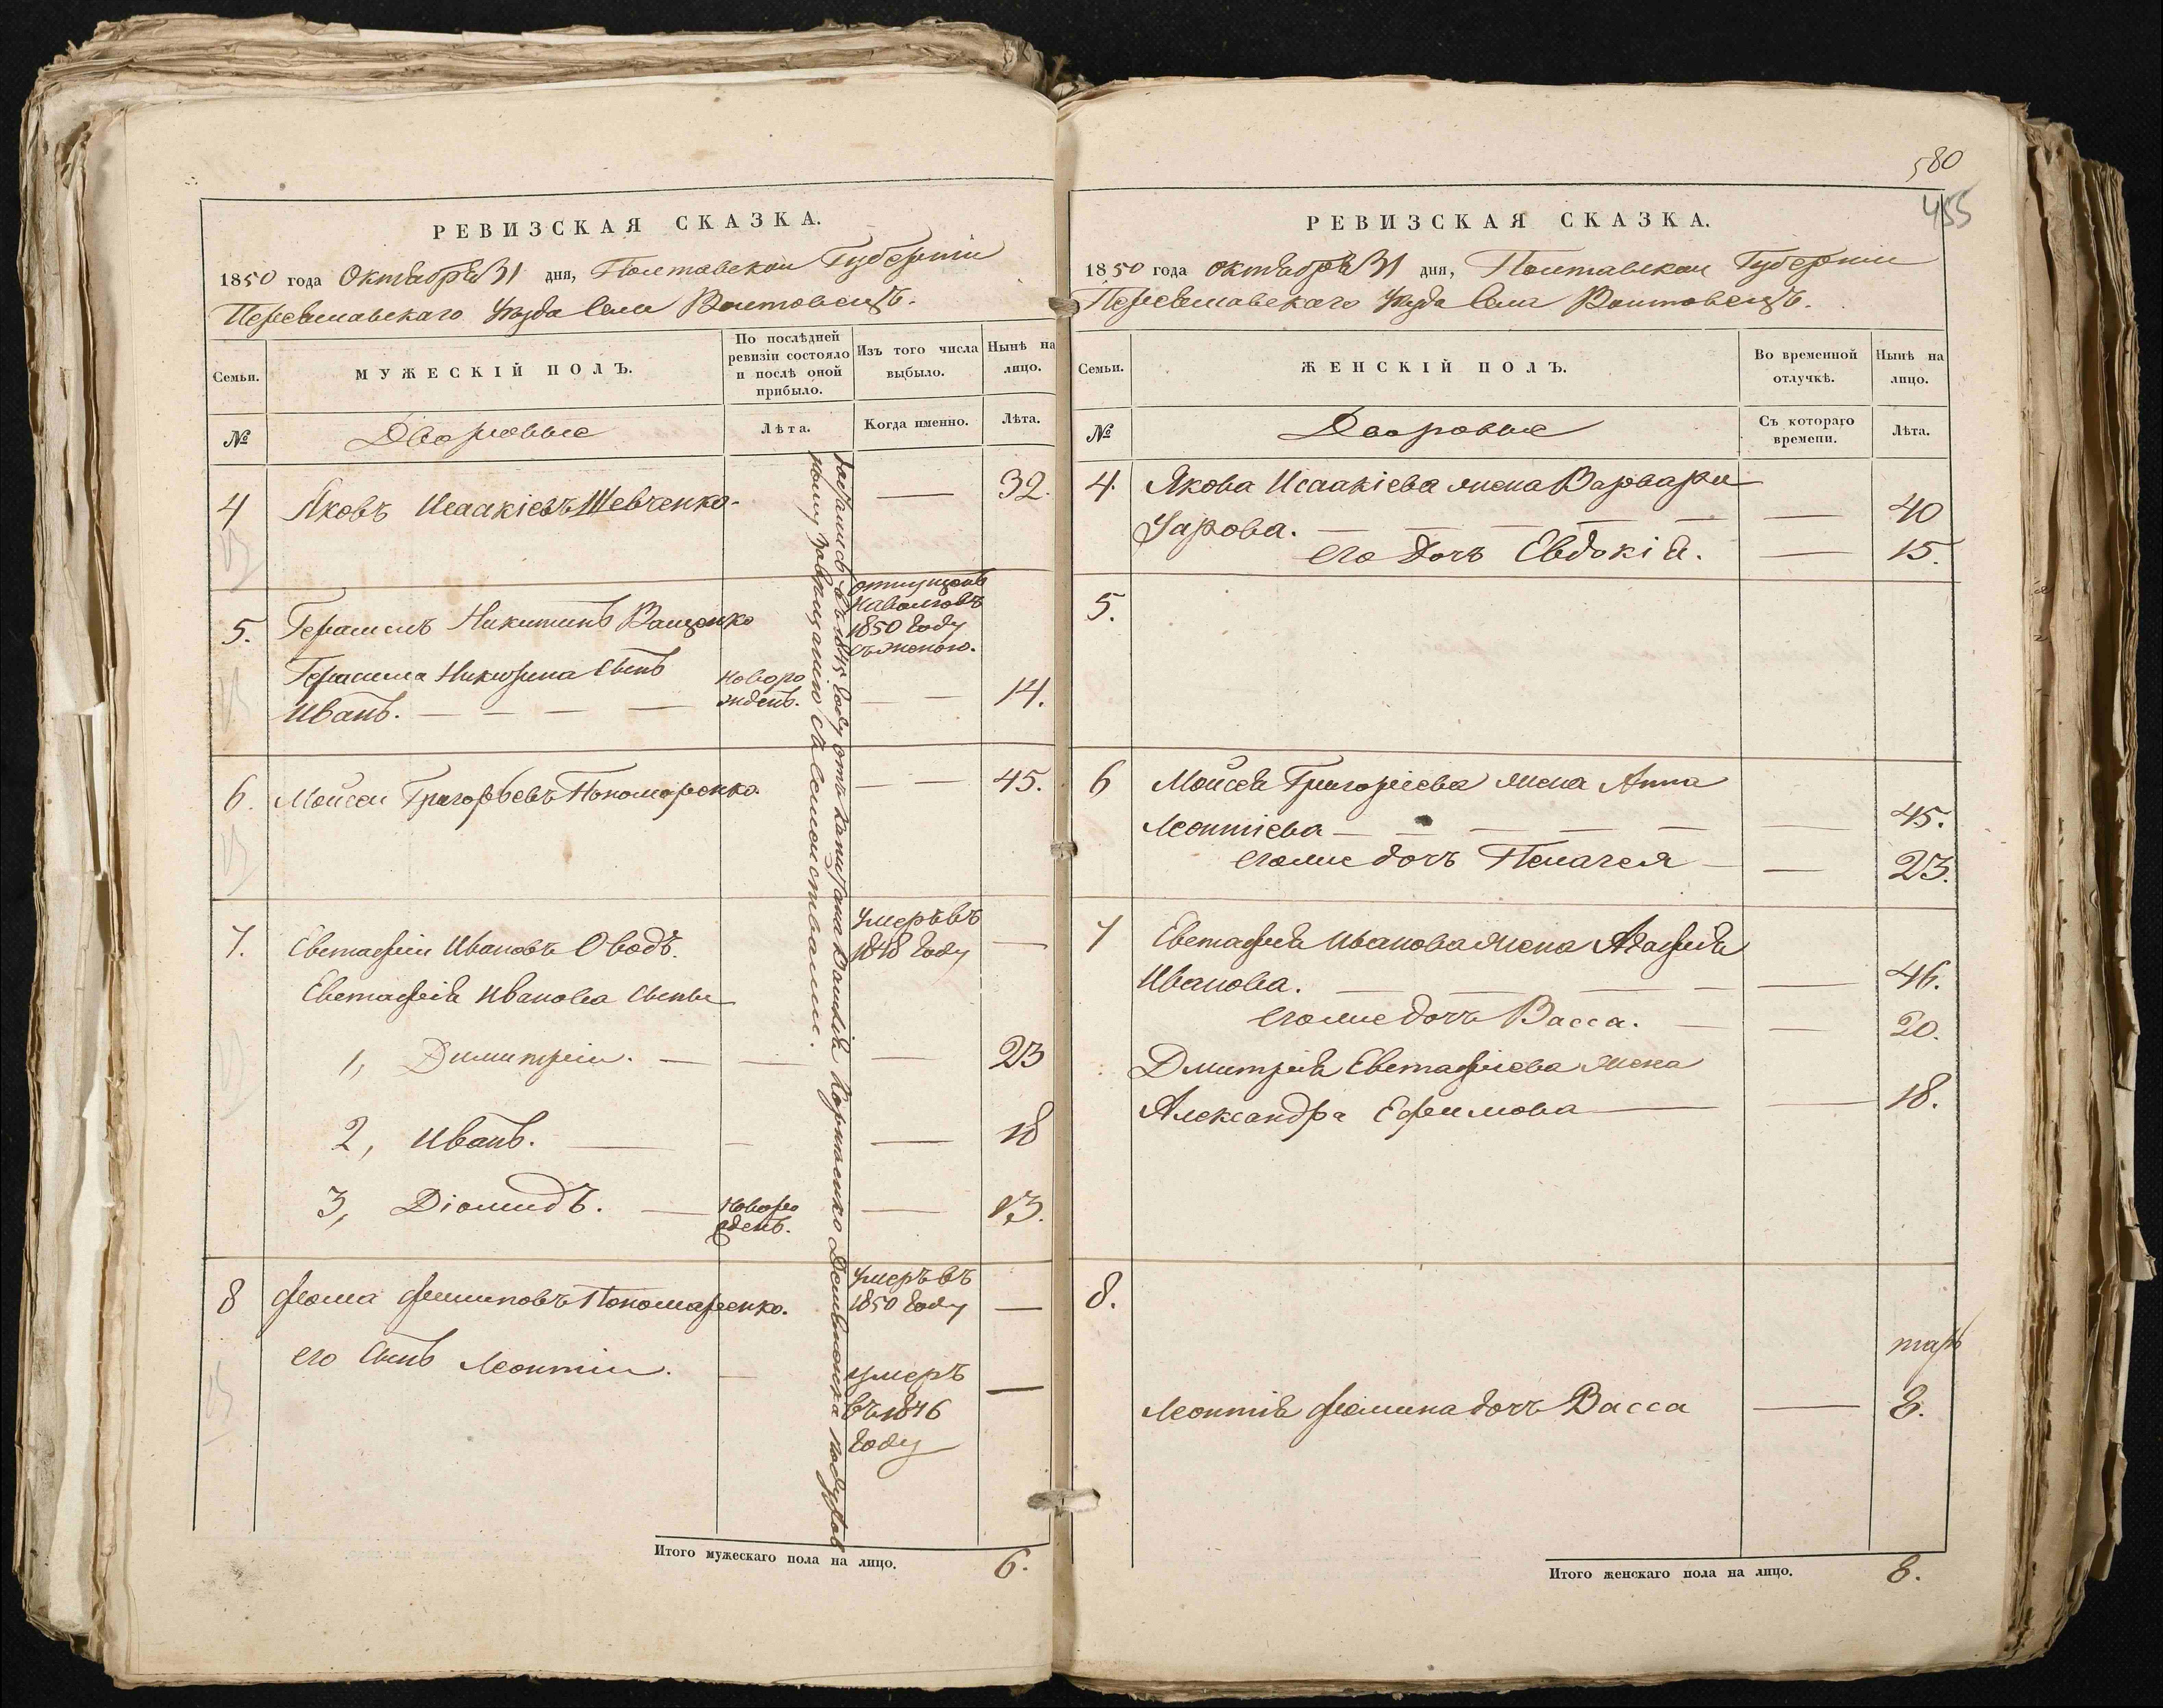 РЕВИЗСКАЯ СКАЗКА.
1850 года Октября 31 дня, Полтавской Губерніи
Переяславскаго Уезда Села Войтовецъ.
Семьи.
МУЖЕСКІЙ ПОЛЪ.
По послѣдней ревизіи состояло и послѣ оной прибыло.
Изъ того числа выбыло.
Нынѣ на лицо.
№
Дворовые
Лѣта.
Когда именно.
Лѣта.
4 Яковъ Исаакіевъ Шевченко — 32.
5. Герасимъ Никитинъ Ващенко отпущенъ на волю въ 1850 году съ женою.
Герасима Никитина Сынъ
Иванъ. — — — — новорожденъ. — — 14.
6. Мойсей Григорьевъ Пономаренко. — — 45.
7. Евстафій Ивановъ Оводъ. Умеръ въ 1848 году —
Евстафія Иванова Сыны
1, Димитрій. — — — 23
2, Иванъ. — — — 18
3, Діомидъ. — новорожденъ. — 13.
8 Фома Филиповъ Пономаренко. Умеръ въ 1850 году —
его Сынъ Леонтій. — умеръ въ 1846 году —
въ 1845 году отъ Капитана Корниенко
духовному завещанію
Итого мужескаго пола на лицо. 6.
580
455
РЕВИЗСКАЯ СКАЗКА.
1850 года Октября 31 дня, Полтавской Губерніи
Переяславскаго Уезда Села Войтовецъ.
Семьи.
ЖЕНСКІЙ ПОЛЪ.
Во временной отлучкѣ.
Нынѣ на лицо.
№
Дворовые
Съ котораго времени.
Лѣта.
4. Якова Исаакіева жена Варвара
Уарова. — — — — — — 40
его дочь Евдокія. — 15.
5.
6 Мойсея Григоріева жена Анна
Леонтіева — — — — — — 45.
егоже дочь Пелагея — — 23.
7 Евстафія Иванова жена Агафія
Иванова. — — — — — 46.
егоже дочь Васса. — — 20.
Дмитрія Евстафіева жена
Александра Ефимова — — 18.
8.
Леонтія Фомина дочь Васса — 8.
Итого женскаго пола на лицо. 8.